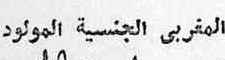 المغربى الجنسية المولود